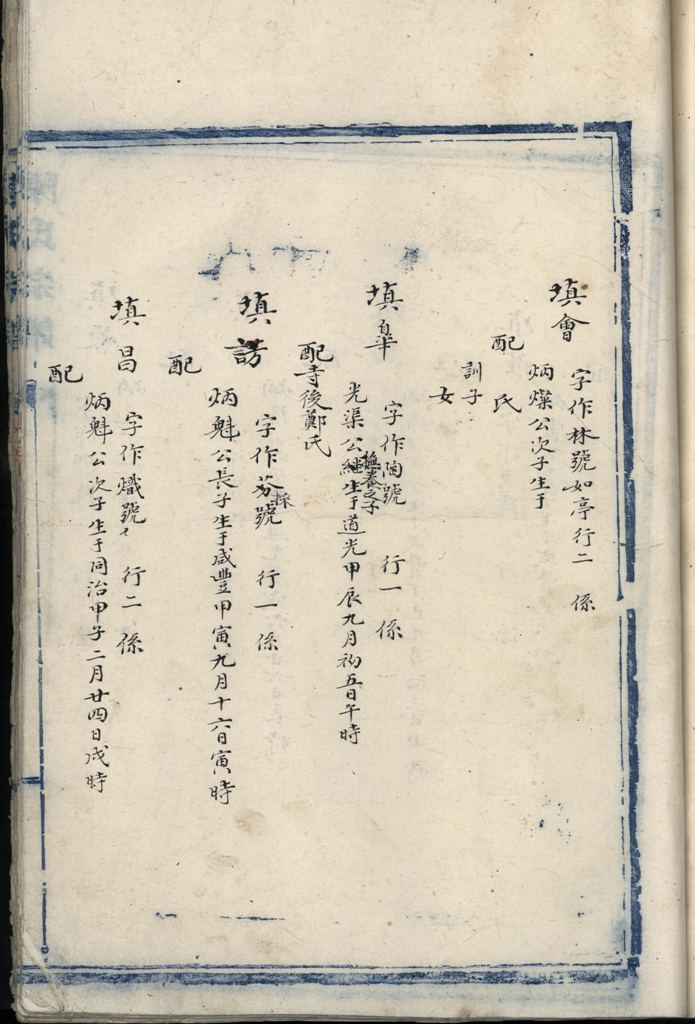 填會
字作林號如亭行二 係
炳燦公次子生于
配 氏
訓子
女
填皐
字作陶號 行一係
光渠公繼生于道光甲辰九月初五日午時
撫養之子
配寺後鄭氏
填訪
字作芬號 行一係
採
炳魁公長子生于咸豐甲寅九月十六日寅時
配
填昌
字作熾號 行二 係
炳魁公次子生于同治甲子二月廿四日戌時
配
陳氏宗譜